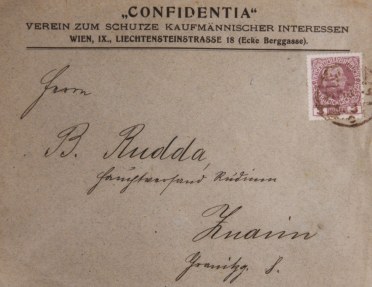 „CONFIDENTIA“
VEREIN ZUM SCHUTZE KAUFMÄNNISCHER INTERESSEN
WIEN, IX., LIECHTENSTEINSTRASSE 18 (Ecke Berggasse).
Herrn
B. Rudda,
Znaim
8.